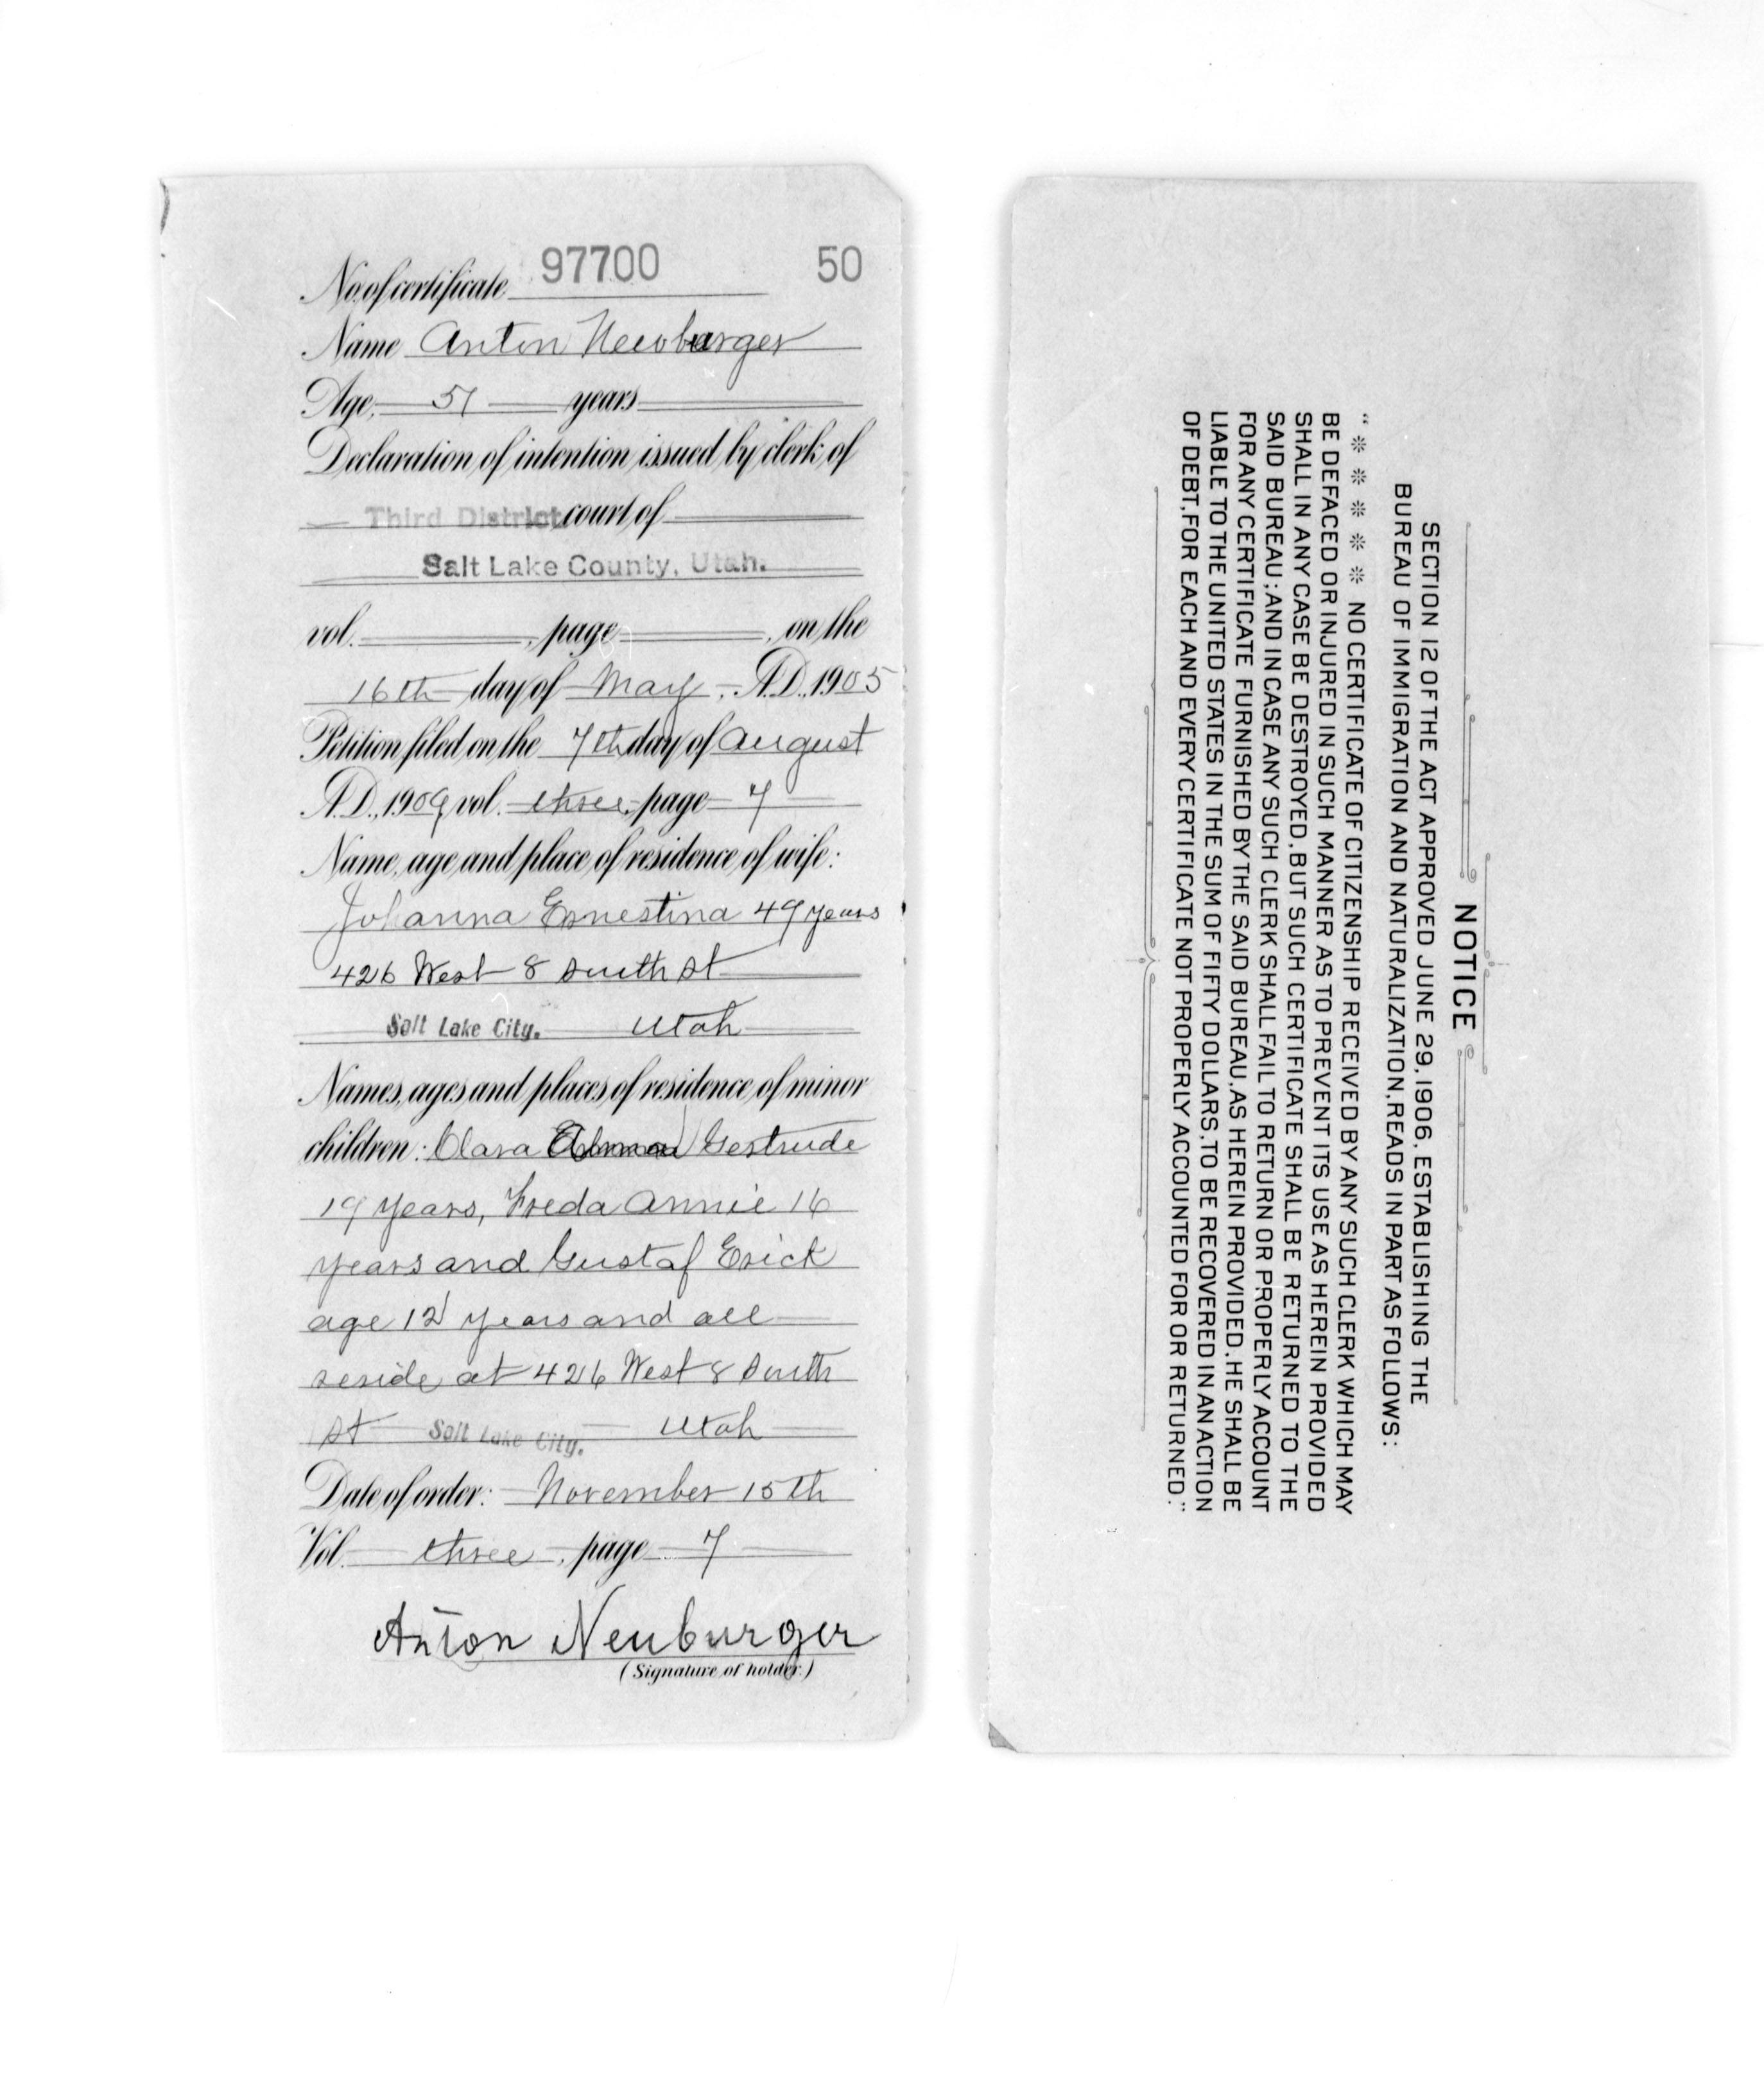 No. of certificate 97700 50
Name Anton Neuburger
Age, 51 years
Declaration of intention issued by clerk of
Third District court of
Salt Lake County, Utah.
vol. , page , on the
16th day of May, A.D. 1905
Petition filed on the 7th day of August
A.D., 1909, vol. three, page 7
Name, age and place of residence of wife:
Johanna Ernestina 49 years
426 West 8 South St
Salt Lake City. Utah
Names, ages and places of residence of minor
children: Clara Gertrude
19 years, Freda Annie 16
years and Gustaf Erick
age 12 years and all
reside at 426 West 8 South
St Salt Lake City. Utah
Date of order: November 15th
Vol. three, page 7
Anton Neuburger
(Signature of holder.)
NOTICE
SECTION 12 OF THE ACT APPROVED JUNE 29, 1906, ESTABLISHING THE
BUREAU OF IMMIGRATION AND NATURALIZATION, READS IN PART AS FOLLOWS:
"* * * * * NO CERTIFICATE OF CITIZENSHIP RECEIVED BY ANY SUCH CLERK WHICH MAY
BE DEFACED OR INJURED IN SUCH MANNER AS TO PREVENT ITS USE AS HEREIN PROVIDED
SHALL IN ANY CASE BE DESTROYED, BUT SUCH CERTIFICATE SHALL BE RETURNED TO THE
SAID BUREAU; AND IN CASE ANY SUCH CLERK SHALL FAIL TO RETURN OR PROPERLY ACCOUNT
FOR ANY CERTIFICATE FURNISHED BY THE SAID BUREAU, AS HEREIN PROVIDED, HE SHALL BE
LIABLE TO THE UNITED STATES IN THE SUM OF FIFTY DOLLARS, TO BE RECOVERED IN AN ACTION
OF DEBT, FOR EACH AND EVERY CERTIFICATE NOT PROPERLY ACCOUNTED FOR OR RETURNED."